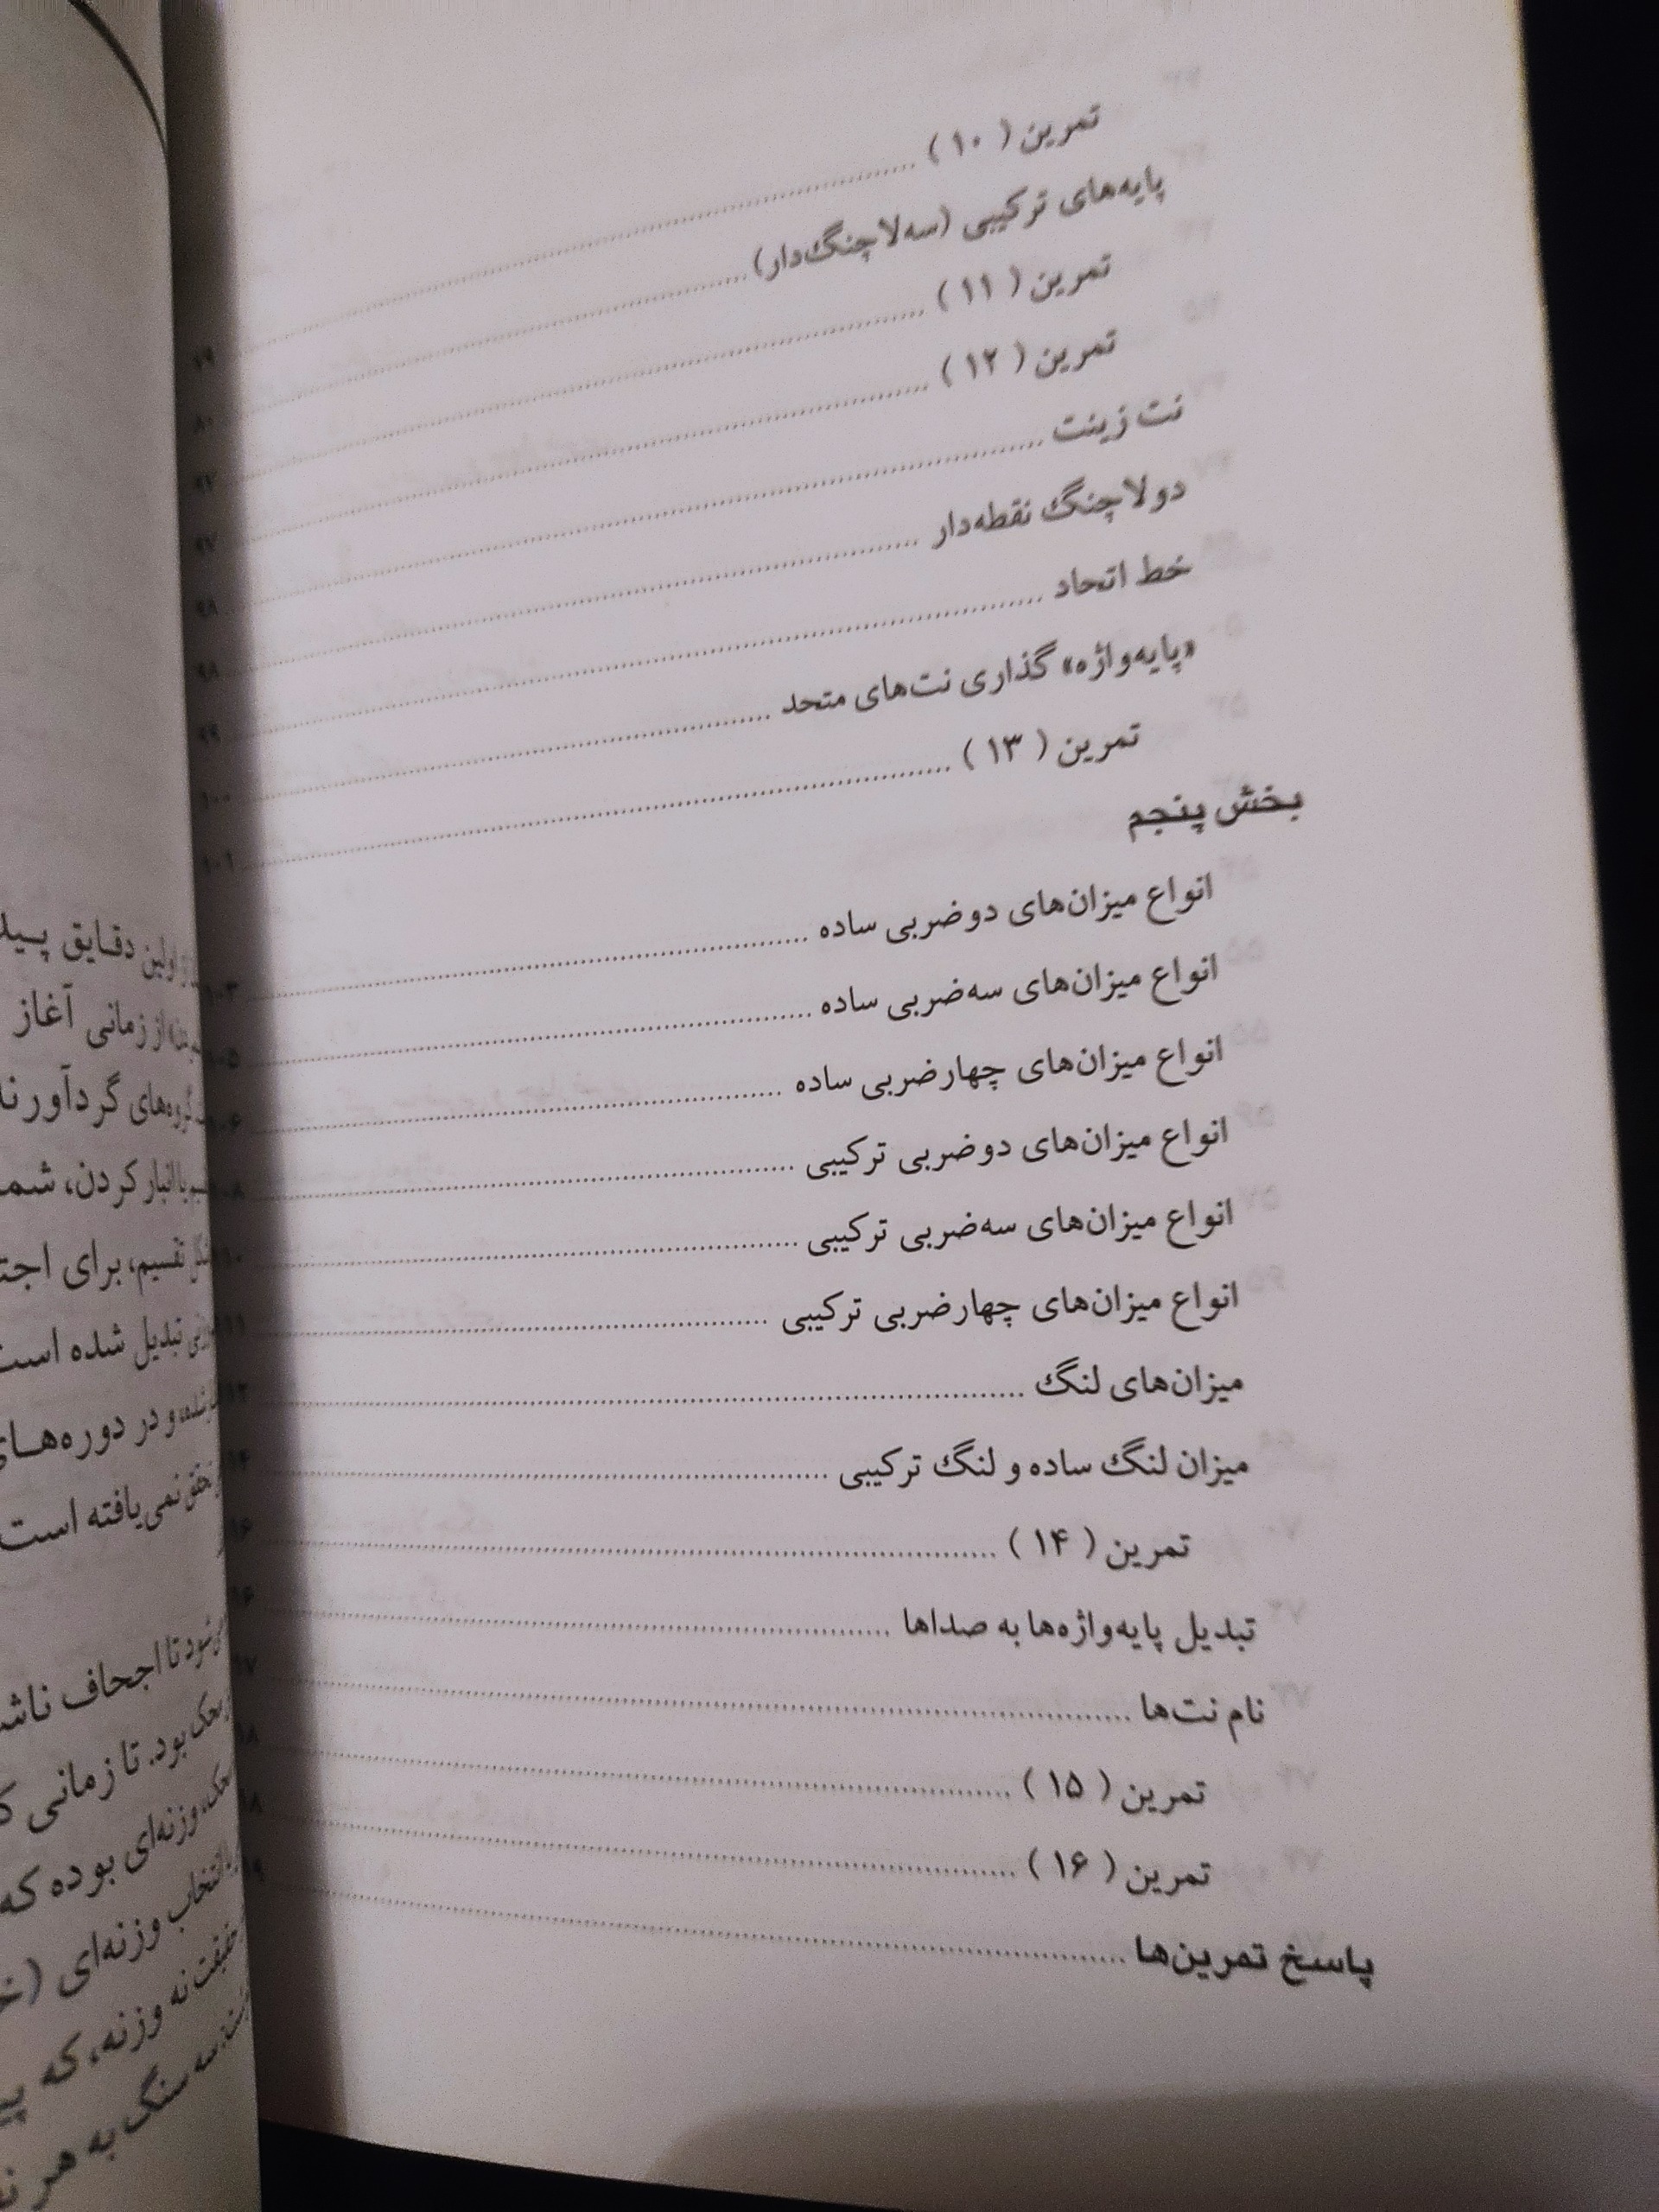 تمرین ( ۱۰ ) ........ ۷۹
پایه‌های ترکیبی (سه‌لاچنگ‌دار) ........ ۸۰
تمرین ( ۱۱ ) ........ ۹۷
تمرین ( ۱۲ ) ........ ۹۷
نت زینت ........ ۹۸
دولاچنگ نقطه‌دار ........ ۹۸
خط اتحاد ........ ۹۹
«پایه‌واژه» گذاری نت‌های متحد ........ ۱۰۰
تمرین ( ۱۳ ) ........ ۱۰۱
بخش پنجم
انواع میزان‌های دوضربی ساده ........ ۱۰۳
انواع میزان‌های سه‌ضربی ساده
انواع میزان‌های چهارضربی ساده
انواع میزان‌های دوضربی ترکیبی
انواع میزان‌های سه‌ضربی ترکیبی
انواع میزان‌های چهارضربی ترکیبی
میزان‌های لنگ
میزان لنگ ساده و لنگ ترکیبی
تمرین ( ۱۴ )
تبدیل پایه‌واژه‌ها به صداها
نام نت‌ها
تمرین ( ۱۵ )
تمرین ( ۱۶ )
پاسخ تمرین‌ها
اولین دقایق
از زمانی آغاز
گروه‌های
انبار کردن،
تقسیم، برای
تبدیل شده است
و در دوره‌های
تحقق نمی‌یافته است
می‌شود تا اجحاف
محک بود. تا زمانی
محک، وزنه‌ای بوده که
انتخاب وزنه‌ای
حقیقت نه وزنه، که
سه سنگ به هر